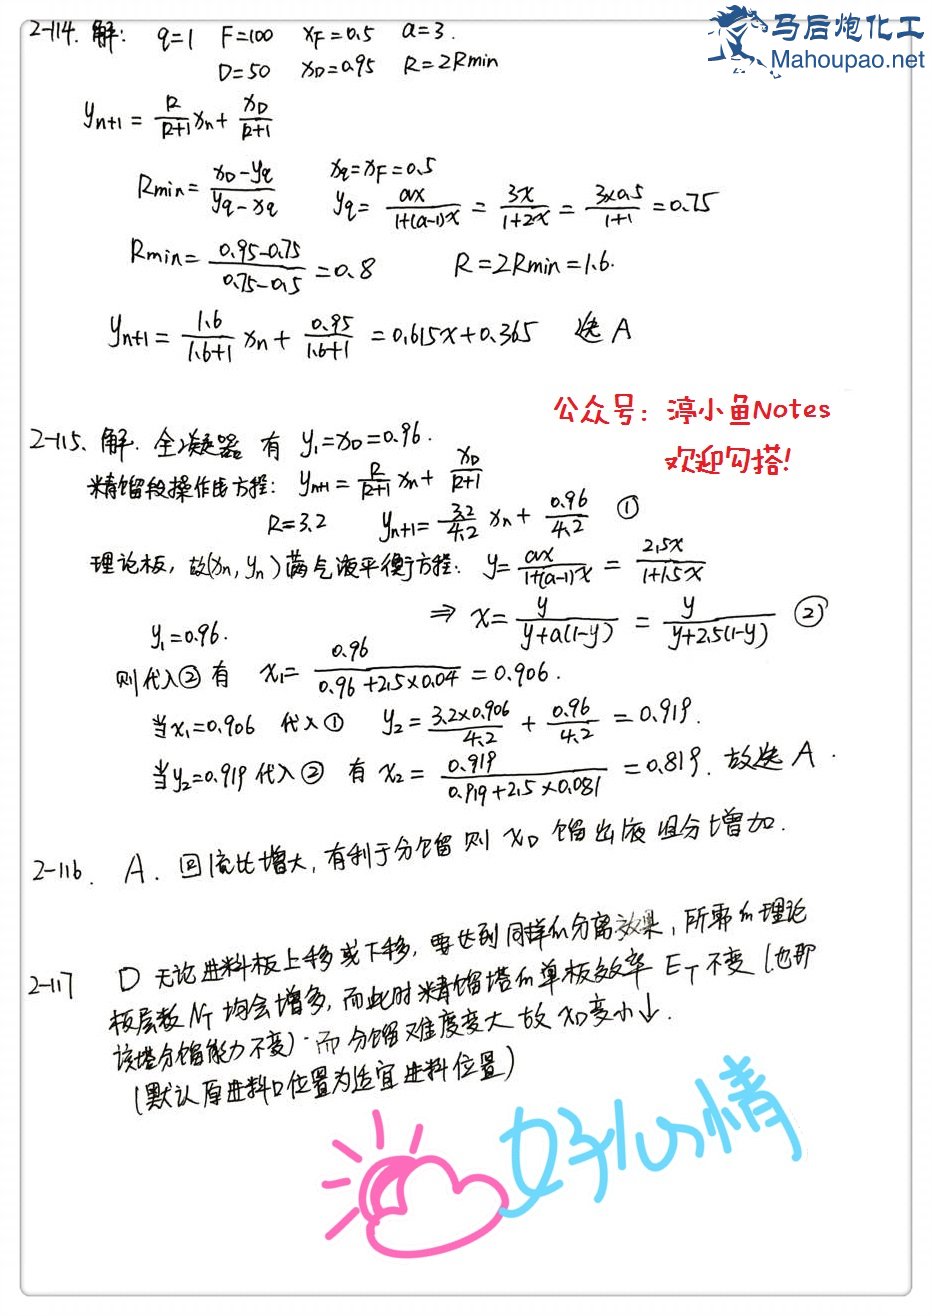 马后炮化工
Mahoupao.net
2-114. 解: q=1 F=100 xF=0.5 a=3.
D=50 xD=0.95 R=2Rmin
yn+1 = R/(R+1) xn + xD/(R+1)
Rmin = (xD-yq)/(yq-xq) xq=xF=0.5
yq = ax/(1+(a-1)x) = 3x/(1+2x) = 3×0.5/(1+1) = 0.75
Rmin = (0.95-0.75)/(0.75-0.5) = 0.8 R=2Rmin=1.6.
yn+1 = 1.6/(1.6+1) xn + 0.95/(1.6+1) = 0.615x+0.365 选 A
公众号: 渟小鱼Notes
欢迎勾搭!
2-115. 解. 全凝器 有 y1=xD=0.96.
精馏段操作线方程: yn+1 = R/(R+1) xn + xD/(R+1)
R=3.2 yn+1 = 3.2/4.2 xn + 0.96/4.2 ①
理论板, 故(xn, yn)满气液平衡方程: y = ax/(1+(a-1)x) = 2.5x/(1+1.5x)
⇒ x = y/(y+a(1-y)) = y/(y+2.5(1-y)) ②
y1=0.96.
则代入② 有 x1 = 0.96/(0.96+2.5×0.04) = 0.906.
当x1=0.906 代入① y2 = 3.2×0.906/4.2 + 0.96/4.2 = 0.919.
当y2=0.919 代入② 有 x2 = 0.919/(0.919+2.5×0.081) = 0.819. 故选 A.
2-116. A. 回流比增大, 有利于分馏 则 xD 馏出液 组分增加.
2-117 D 无论进料板上移或下移, 要达到同样的分离效果, 所需的理论
板层数 NT 均会增多, 而此时精馏塔的单板效率 ET 不变 (也即
该塔分馏能力不变). 而分馏难度变大 故 xD变小↓.
(默认原进料口位置为适宜进料位置)
好心情